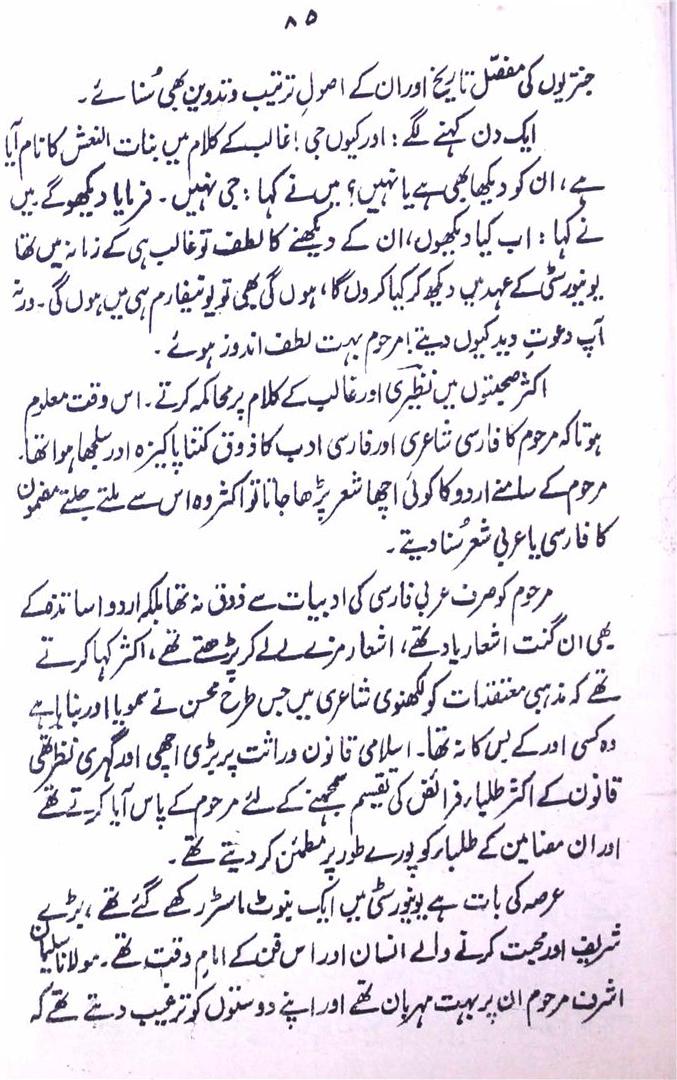 ۸۵
جنتریوں کی مفصّل تاریخ اور ان کے اصولِ ترتیب و تدوین بھی سُنائے۔
ایک دن کہنے لگے: اور کیوں جی! غالب کے کلام میں بنات النعش کا نام آیا
ہے، ان کو دیکھا بھی ہے یا نہیں؟ میں نے کہا: جی نہیں۔ فرمایا دیکھو گے میں
نے کہا: اب کیا دیکھوں، ان کے دیکھنے کا لطف تو غالب ہی کے زمانہ میں تھا
یونیورسٹی کے عہد میں دیکھ کر کیا کروں گا، ہوں گی بھی تو یونیفارم ہی میں ہوں گی۔ ورنہ
آپ دعوتِ دید کیوں دیتے! مرحوم بہت لطف اندوز ہوئے۔
اکثر صحبتوں میں نظیری اور غالب کے کلام پر محاکمہ کرتے۔ اس وقت معلوم
ہوتا کہ مرحوم کا فارسی شاعری اور فارسی ادب کا ذوق کتنا پاکیزہ اور سلجھا ہوا تھا۔
مرحوم کے سامنے اردو کا کوئی اچھا شعر پڑھا جاتا تو اکثر وہ اس سے ملتے جلتے مضمون
کا فارسی یا عربی شعر سُنا دیتے۔
مرحوم کو صرف عربی فارسی کی ادبیات سے ذوق نہ تھا بلکہ اردو اساتذہ کے
بھی ان گنت اشعار یاد تھے، اشعار مزے لے لے کر پڑھتے تھے، اکثر کہا کرتے
تھے کہ مذہبی معتقدات کو لکھنوی شاعری میں جس طرح محسن نے سمویا اور نباہا ہے
وہ کسی اور کے بس کا نہ تھا۔ اسلامی قانون وراثت پر بڑی اچھی اور گہری نظر تھی
قانون کے اکثر طلباء فرائض کی تقسیم سمجھنے کے لئے مرحوم کے پاس آیا کرتے تھے
اور ان مضامین کے طلباء کو پورے طور پر مطمئن کر دیتے تھے۔
عرصہ کی بات ہے یونیورسٹی میں ایک بنوٹ ماسٹر رکھے گئے تھے، بڑے
شریف اور محبت کرنے والے انسان اور اس فن کے امامِ وقت تھے۔ مولانا سلیمان
اشرف مرحوم ان پر بہت مہربان تھے اور اپنے دوستوں کو ترغیب دیتے تھے کہ